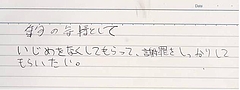 Date
今の気持として
いじめをなくしてもらって、謝罪をしっかりして
もらいたい。